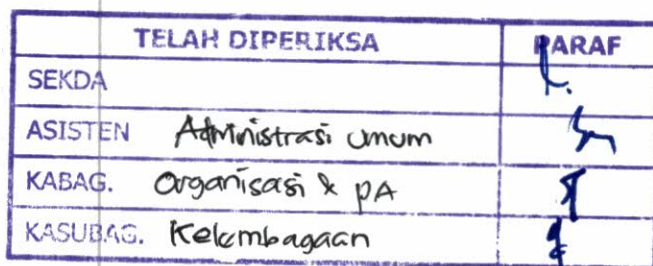 TELAH DIPERIKSA PARAF
SEKDA
ASISTEN Administrasi Umum
KABAG. Organisasi & PA
KASUBAG. Kelembagaan